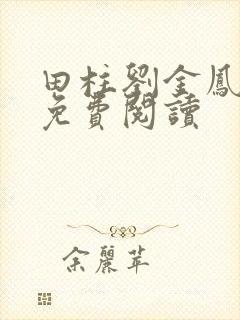 田柱劉金鳳
免費閱讀
余麗苹